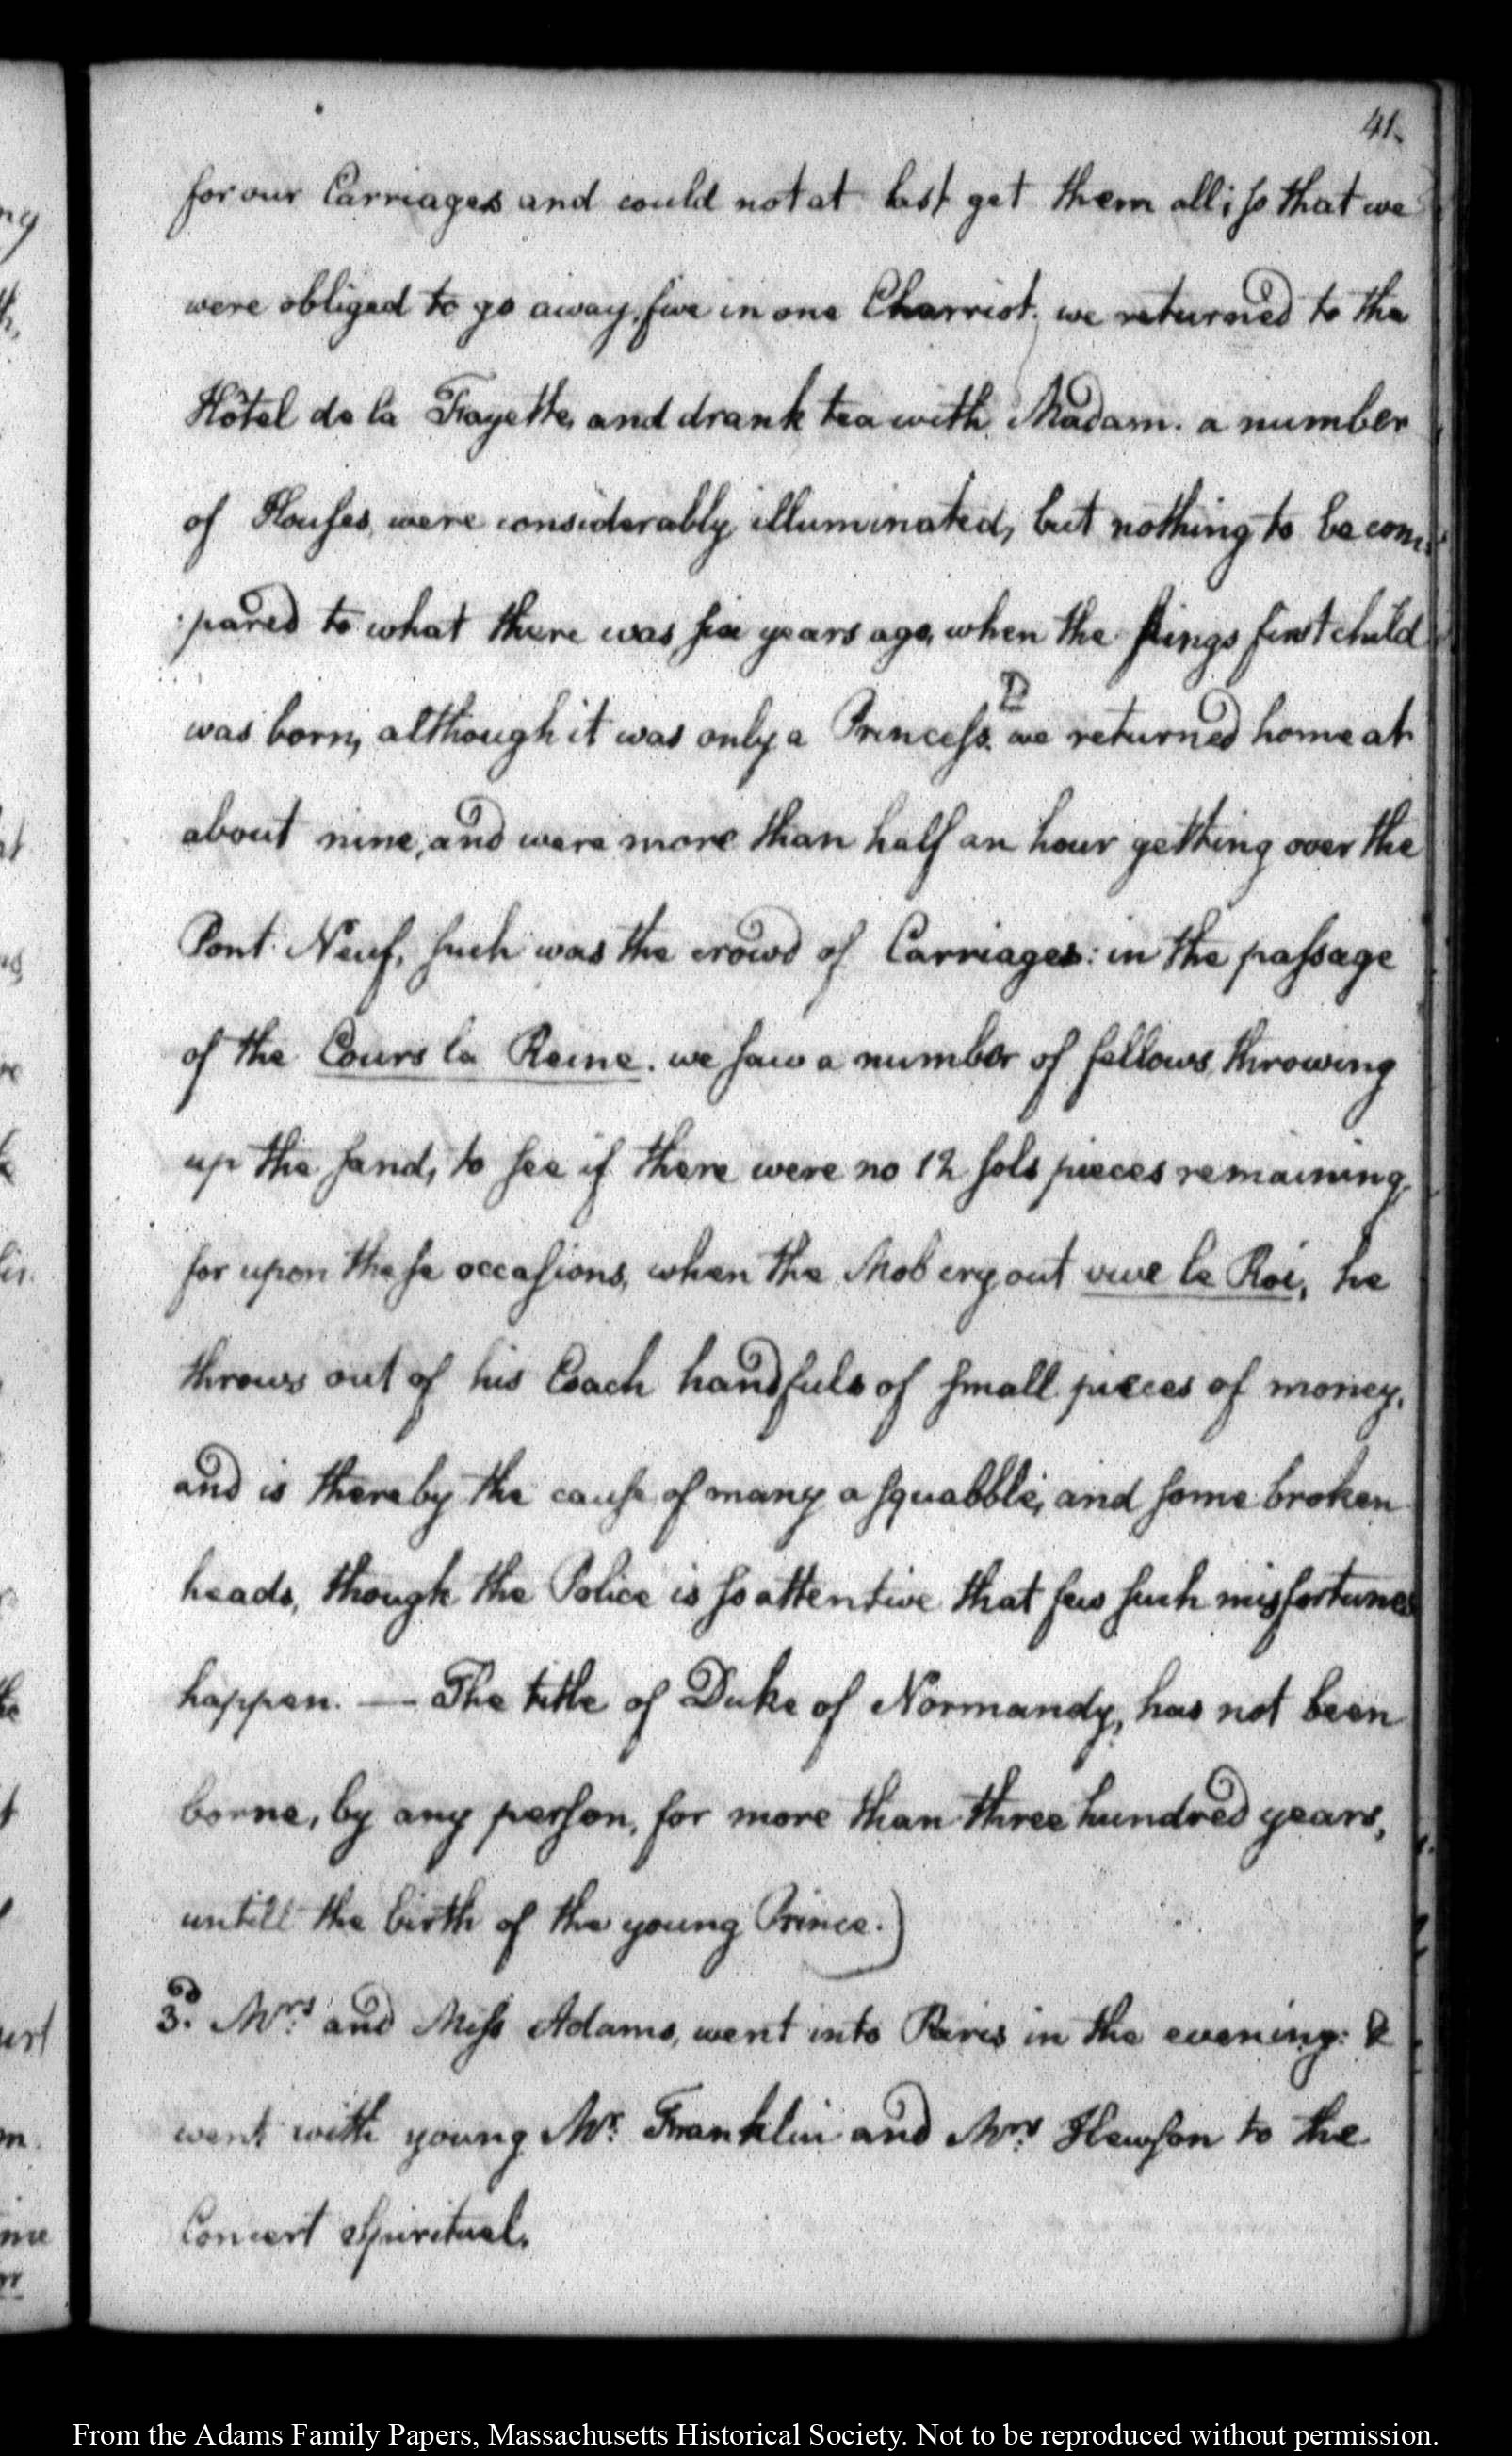 41.
for our Carriages and could not at last get them all; so that we
were obliged to go away, five in one Charriot. we returned to the
Hôtel de la Fayette, and drank tea with Madam. a number
of Houses were considerably illuminated, but nothing to be com:
:pared to what there was six years ago, when the kings first child
was born, although it was only a Princess. we returned home at
about nine, and were more than half an hour getting over the
Pont Neuf, such was the crowd of Carriages: in the passage
of the Cours la Reine. we saw a number of fellows, throwing
up the sand, to see if there were no 12 sols pieces remaining,
for upon these occasions, when the Mob cry out vive le Roi, he
throws out of his Coach handfuls of small pieces of money,
and is thereby the cause of many a squabble, and some broken
heads, though the Police is so attentive that few such misfortunes
happen. — The title of Duke of Normandy, has not been
borne, by any person, for more than three hundred years,
untill the birth of the young Prince.)
3d. Mrs. and Miss Adams, went into Paris in the evening: &
went with young Mr. Franklin and Mrs. Hewson to the
Concert Spirituel.
From the Adams Family Papers, Massachusetts Historical Society. Not to be reproduced without permission.